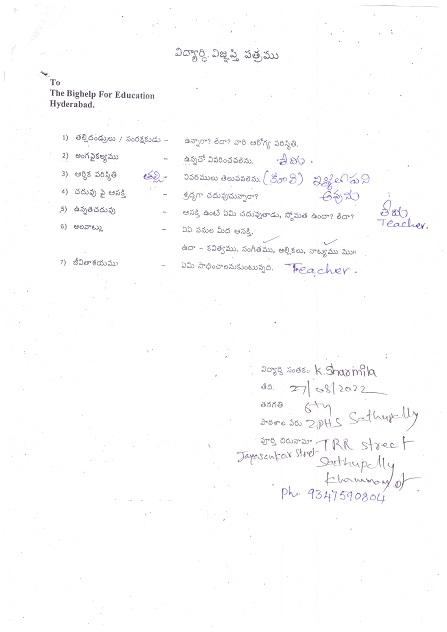 విద్యార్థి విజ్ఞప్తి పత్రము
To
The Bighelp For Education
Hyderabad.
1) తల్లిదండ్రులు / సంరక్షకుడు – ఉన్నారా? లేదా? వారి ఆరోగ్య పరిస్థితి.
2) అంగవైకల్యము – ఉన్నచో వివరించవలెను. లేదు.
3) ఆర్థిక పరిస్థితి తల్లి – వివరములు తెలుపవలెను. (కూలి)
4) చదువు పై ఆసక్తి – శ్రద్ధగా చదువుచున్నారా? అవును
5) ఉన్నతచదువు – ఆసక్తి ఉంటే ఏమి చదువుతాడు, స్తోమత ఉందా? లేదా? లేదు Teacher.
6) అలవాట్లు – ఏఏ పనుల మీద ఆసక్తి.
ఉదా – కవిత్వము, సంగీతము, అల్లికలు, నాట్యము మొ॥
7) జీవితాశయము – ఏమి సాధించాలనుకుంటున్నది. Teacher.
విద్యార్థి సంతకం K. Sharmila
తేది. 27/08/2022
తరగతి 6th
పాఠశాల పేరు Z.P.H.S Sathupally
పూర్తి చిరునామా TRR street
Jayasankar street
Sathupally
Khammam dt
Ph. 9347590804